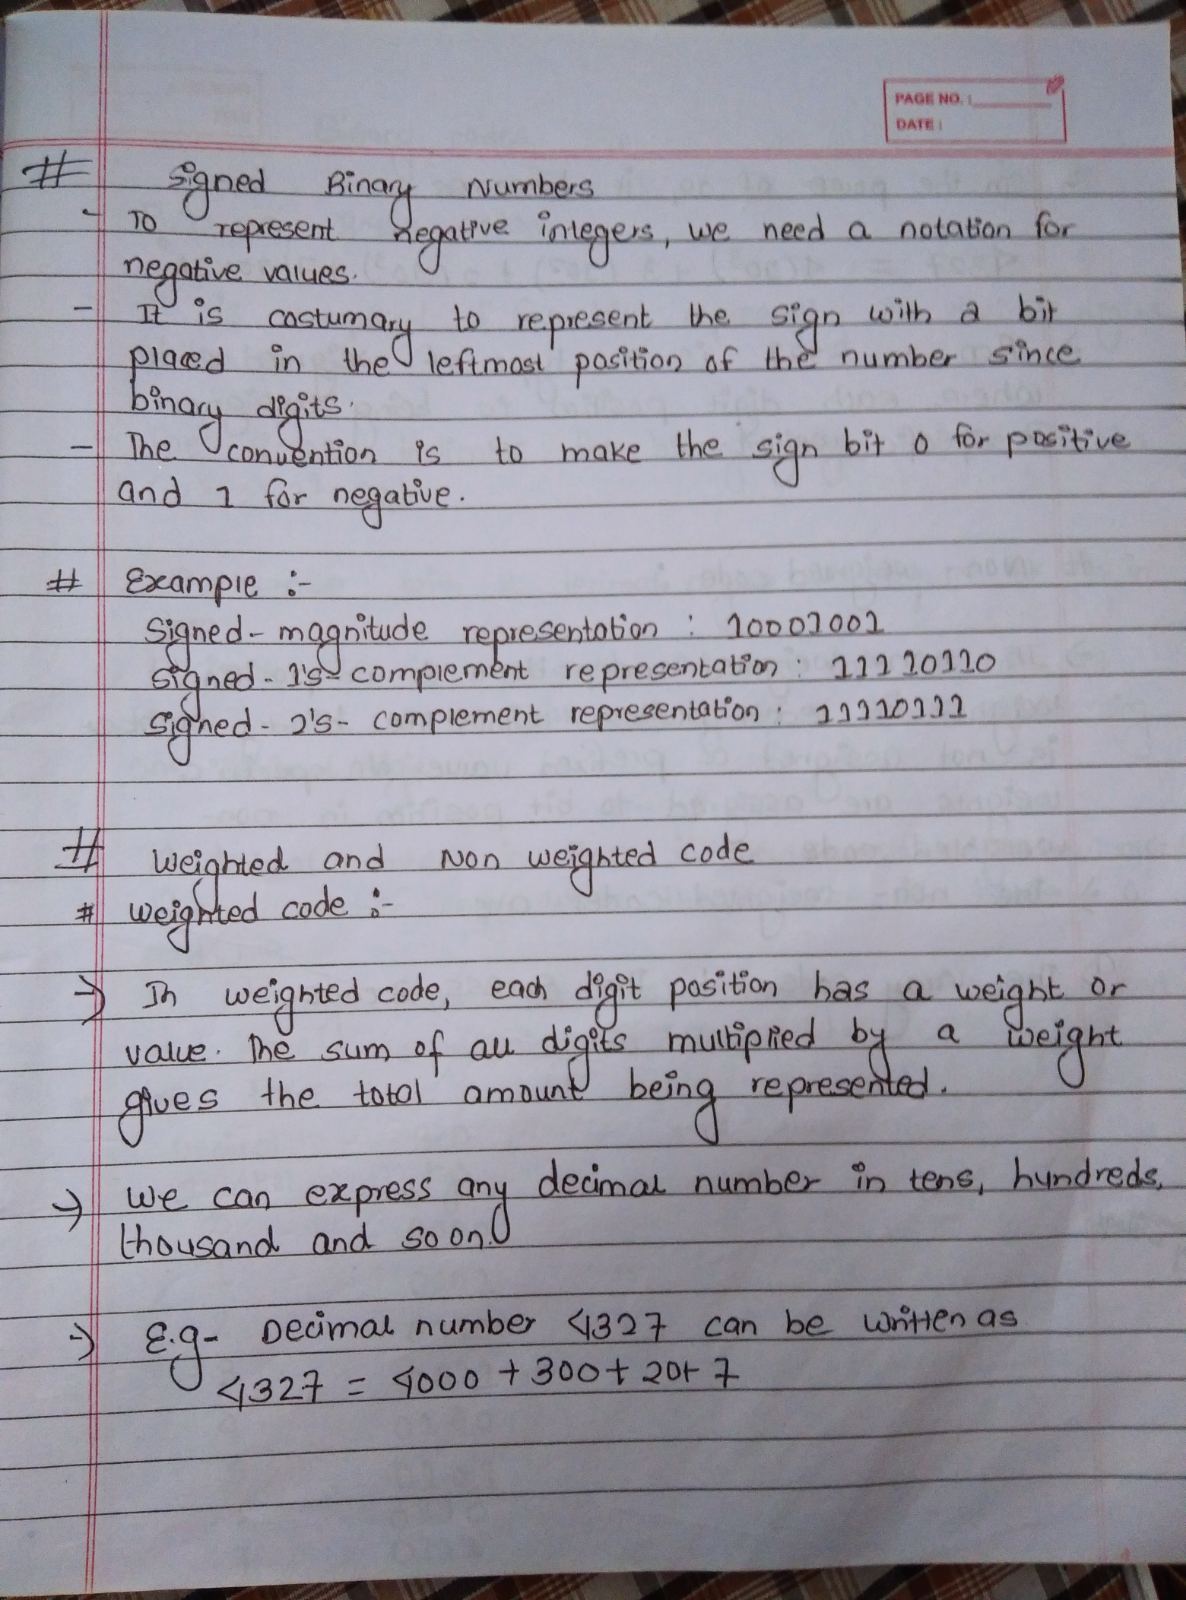 PAGE NO. :
DATE :
# Signed Binary Numbers
- To represent negative integers, we need a notation for
negative values.
- It is costumary to represent the sign with a bit
placed in the leftmost position of the number since
binary digits.
- The convention is to make the sign bit 0 for positive
and 1 for negative.
# Example :-
Signed-magnitude representation : 10001001
Signed-1's complement representation : 11110110
Signed-2's-complement representation : 11110111
# Weighted and Non weighted code
# Weighted code :-
→ In weighted code, each digit position has a weight or
value. The sum of all digits multiplied by a weight
gives the total amount being represented.
→ We can express any decimal number in tens, hundreds,
thousand and so on.
→ E.g- Decimal number 4327 can be written as
4327 = 4000 + 300 + 20 + 7